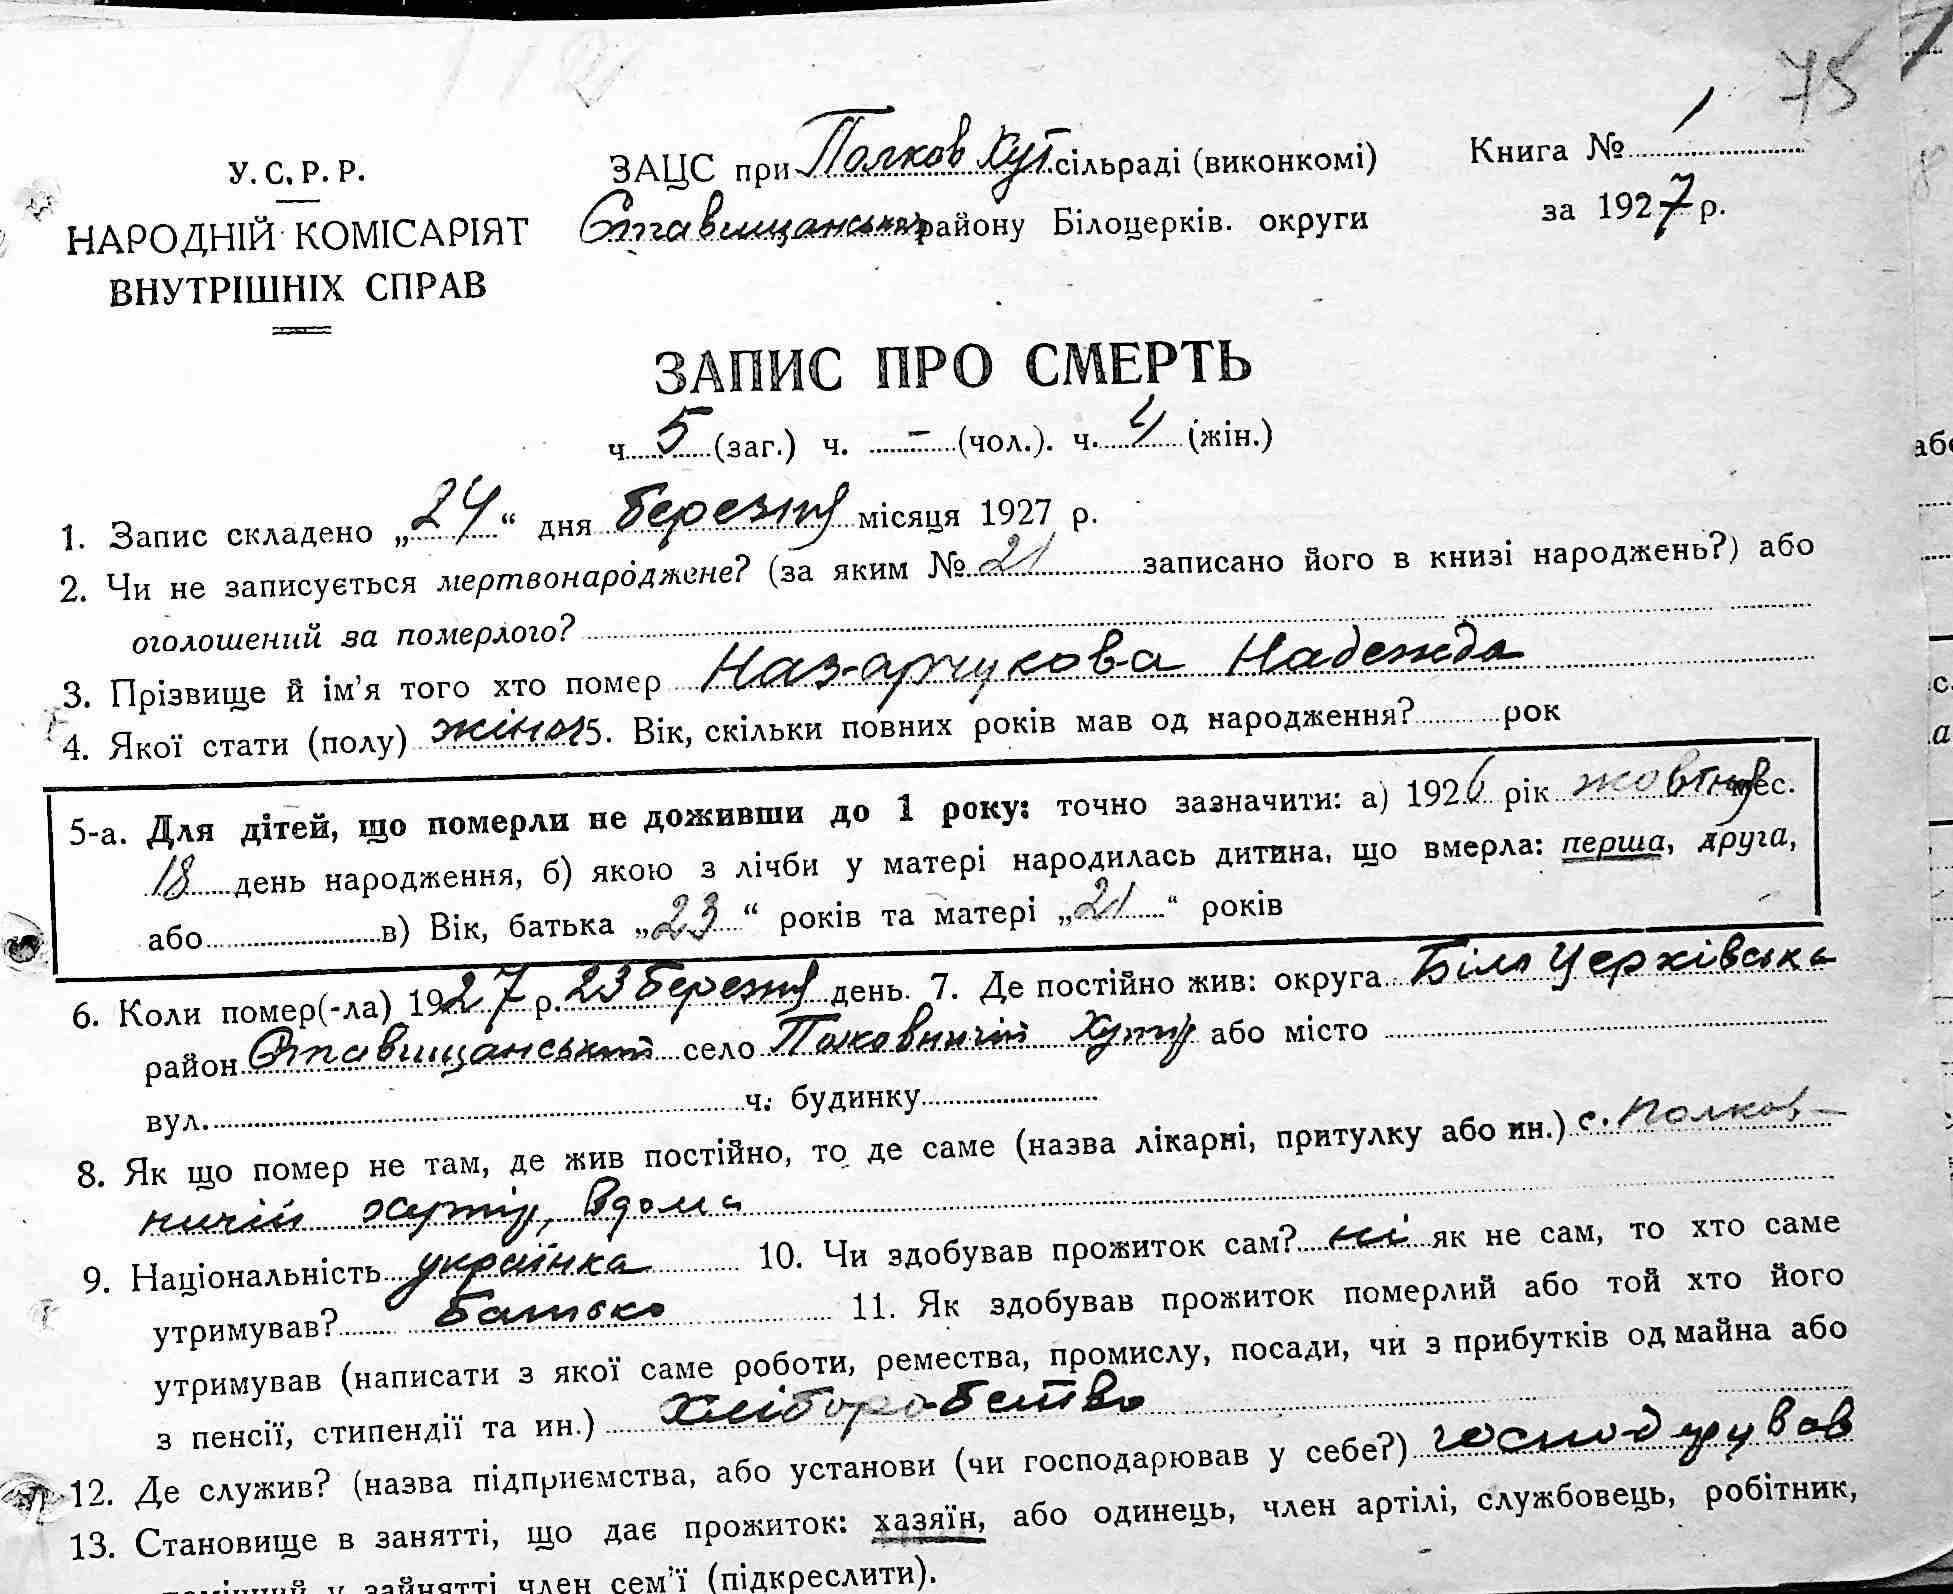 75
У. С. Р. Р.
НАРОДНІЙ КОМІСАРІЯТ
ВНУТРІШНІХ СПРАВ
ЗАЦС при Полков Хут. сільраді (виконкомі)
Ставищанськ району Білоцерків. округи
Книга № 1
за 1927 р.
ЗАПИС ПРО СМЕРТЬ
ч. 5 (заг.) ч. – (чол.). ч. 4 (жін.)
1. Запис складено „24“ дня березня місяця 1927 р.
2. Чи не записується мертвонароджене? (за яким № 21 записано його в книзі народжень?) або
оголошений за померлого?
3. Прізвище й ім'я того хто помер Назарчукова Надежда
4. Якої стати (полу) жіноч 5. Вік, скільки повних років мав од народження? рок
5-а. Для дітей, що померли не доживши до 1 року: точно зазначити: а) 1926 рік жовтня мес.
18 день народження, б) якою з лічби у матері народилась дитина, що вмерла: перша, друга,
або в) Вік, батька „23“ років та матері „21“ років
6. Коли помер(-ла) 1927 р. 23 березня день. 7. Де постійно жив: округа Біло Церківська
район Ставищанський село Полковничій Хутір або місто
вул. ч. будинку
8. Як що помер не там, де жив постійно, то де саме (назва лікарні, притулку або ин.) с. Полков-
ничій хутір, вдома
9. Національність українка 10. Чи здобував прожиток сам? ні як не сам, то хто саме
утримував? батько 11. Як здобував прожиток померлий або той хто його
утримував (написати з якої саме роботи, ремества, промислу, посади, чи з прибутків од майна або
з пенсії, стипендії та ин.) хліборобство
12. Де служив? (назва підприємства, або установи (чи господарював у себе?) господарував
13. Становище в занятті, що дає прожиток: хазяїн, або одинець, член артілі, службовець, робітник,
у зайнятті член сем'ї (підкреслити).